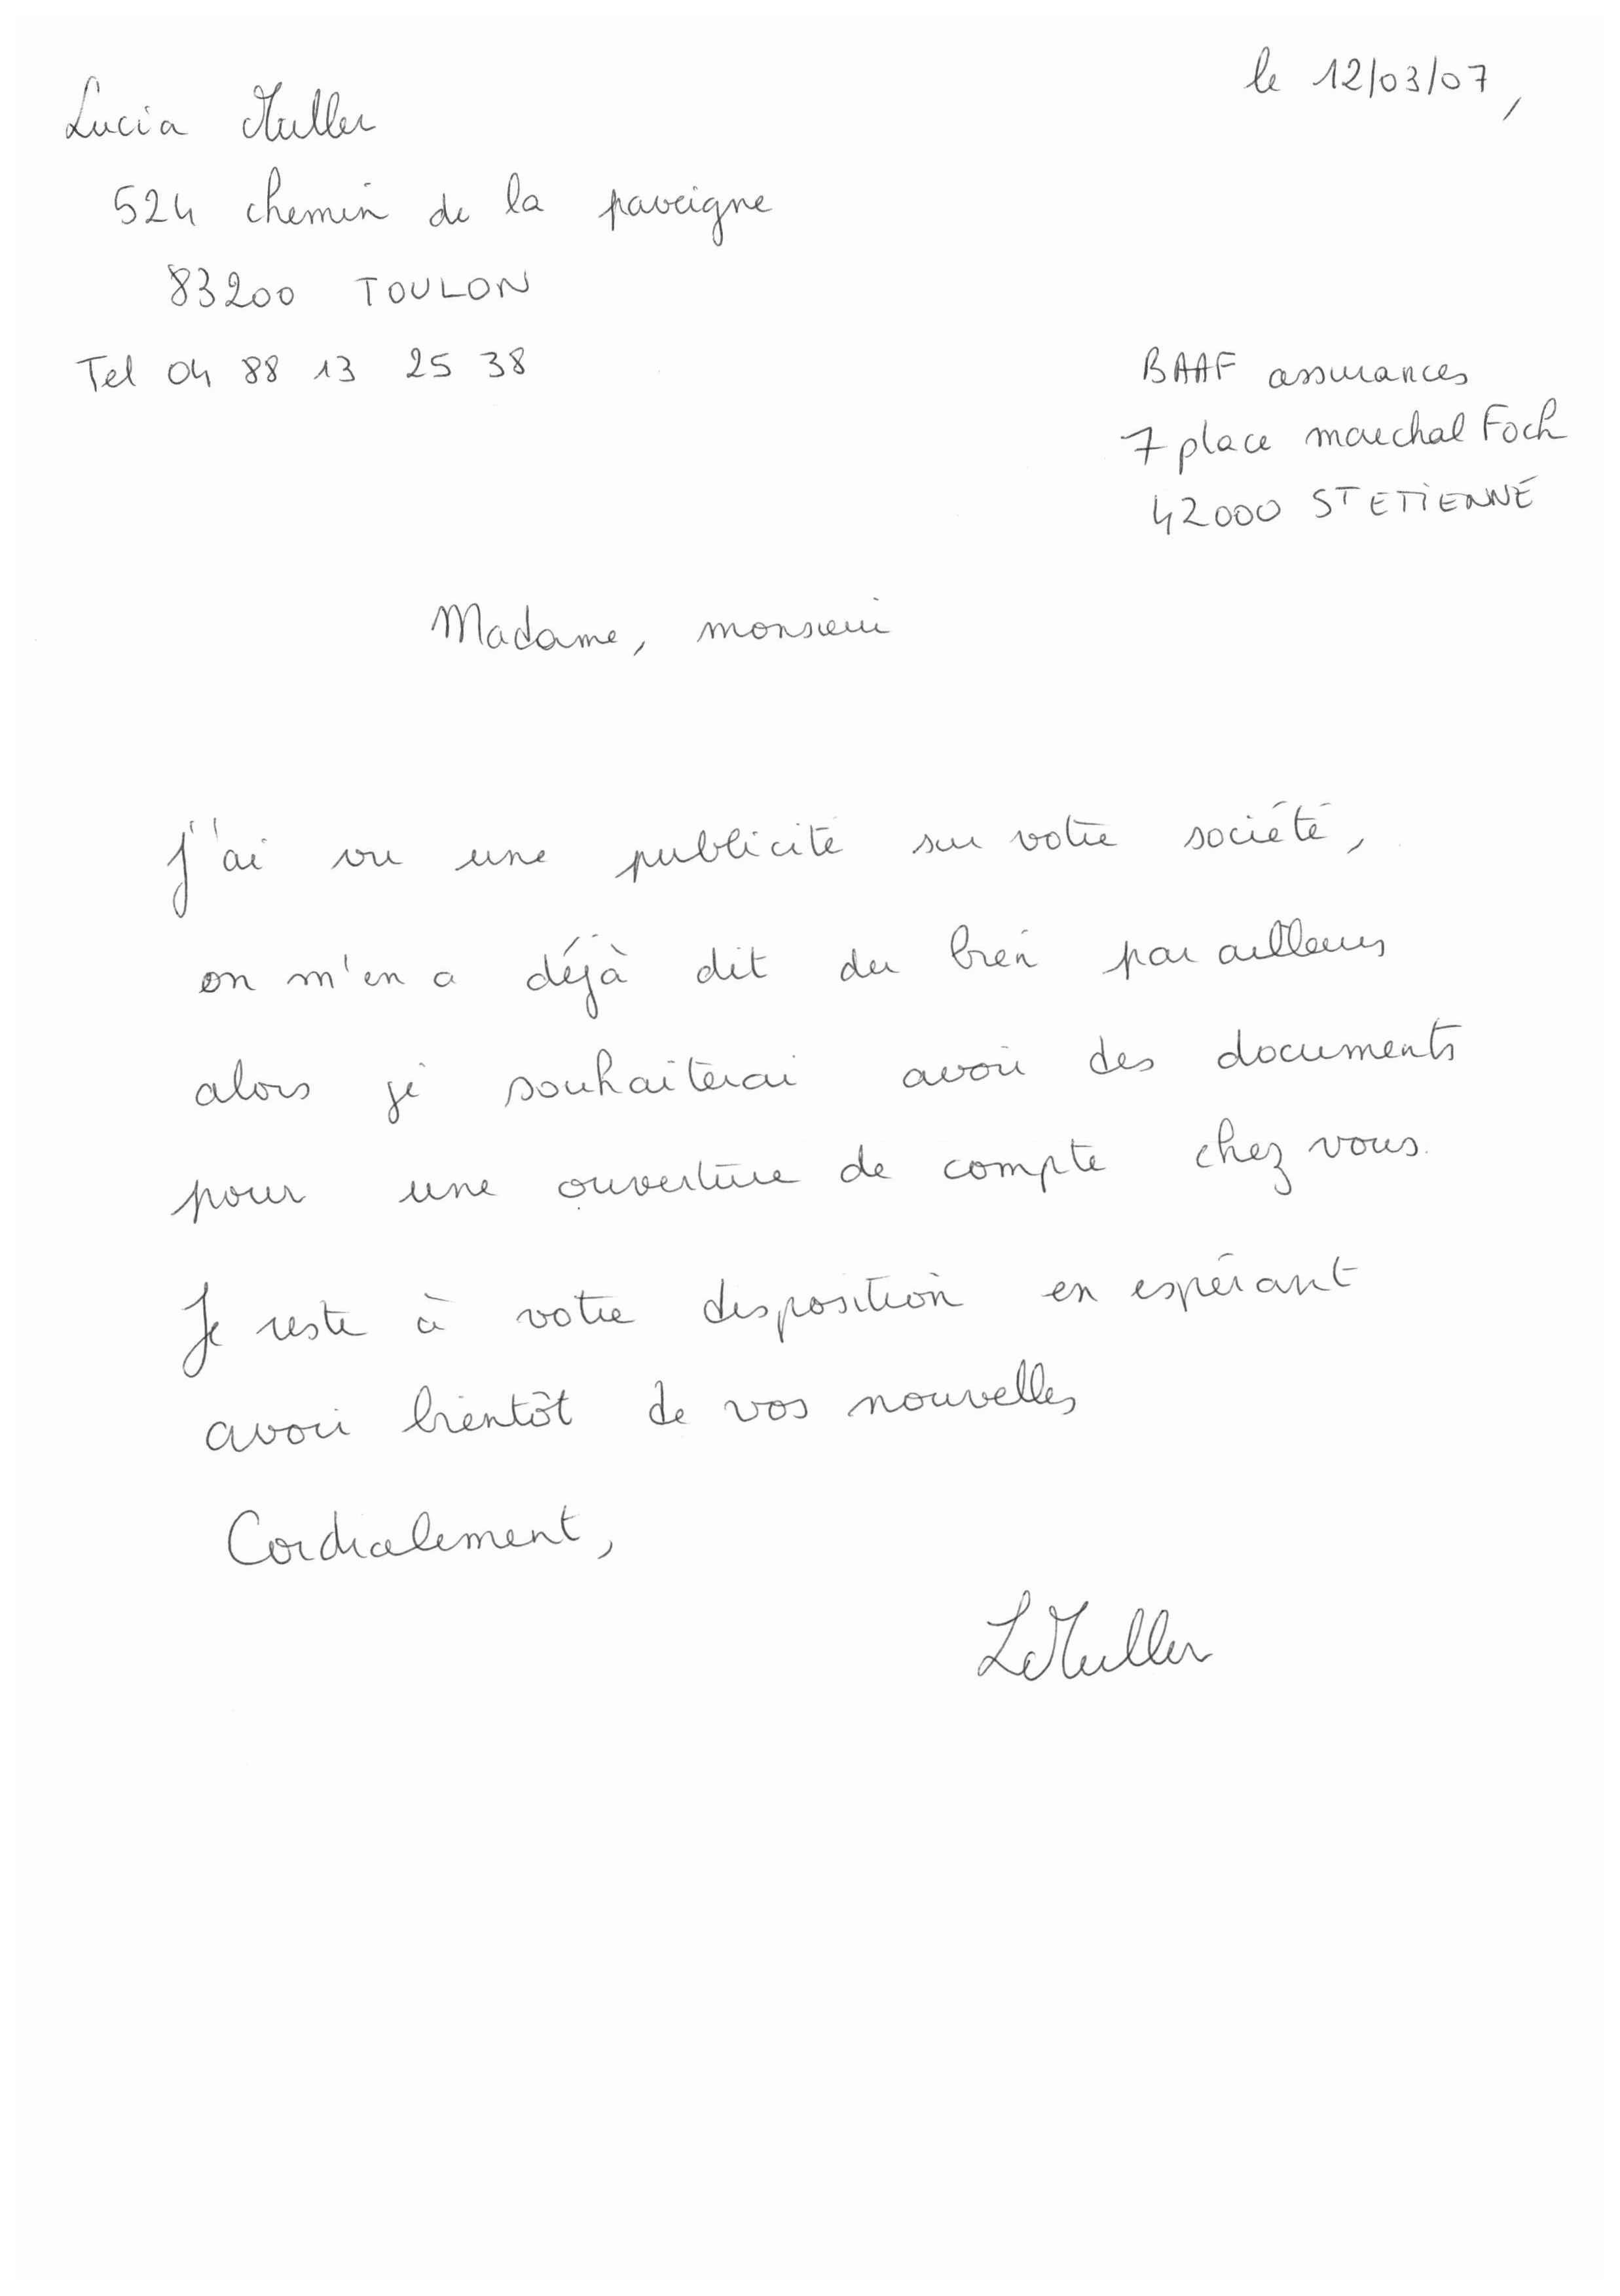 le 12/03/07,
Lucia Muller
524 chemin de la paveigne
83200 TOULON
Tel 04 88 13 25 38
BAAF assurances
7 place marechal Foch
42000 ST ETIENNE
Madame, monsieur
J'ai vu une publicité sur votre société,
on m'en a déjà dit du bien par ailleurs
alors je souhaiterai avoir des documents
pour une ouverture de compte chez vous.
Je reste à votre disposition en espérant
avoir bientôt de vos nouvelles
Cordialement,
L Muller